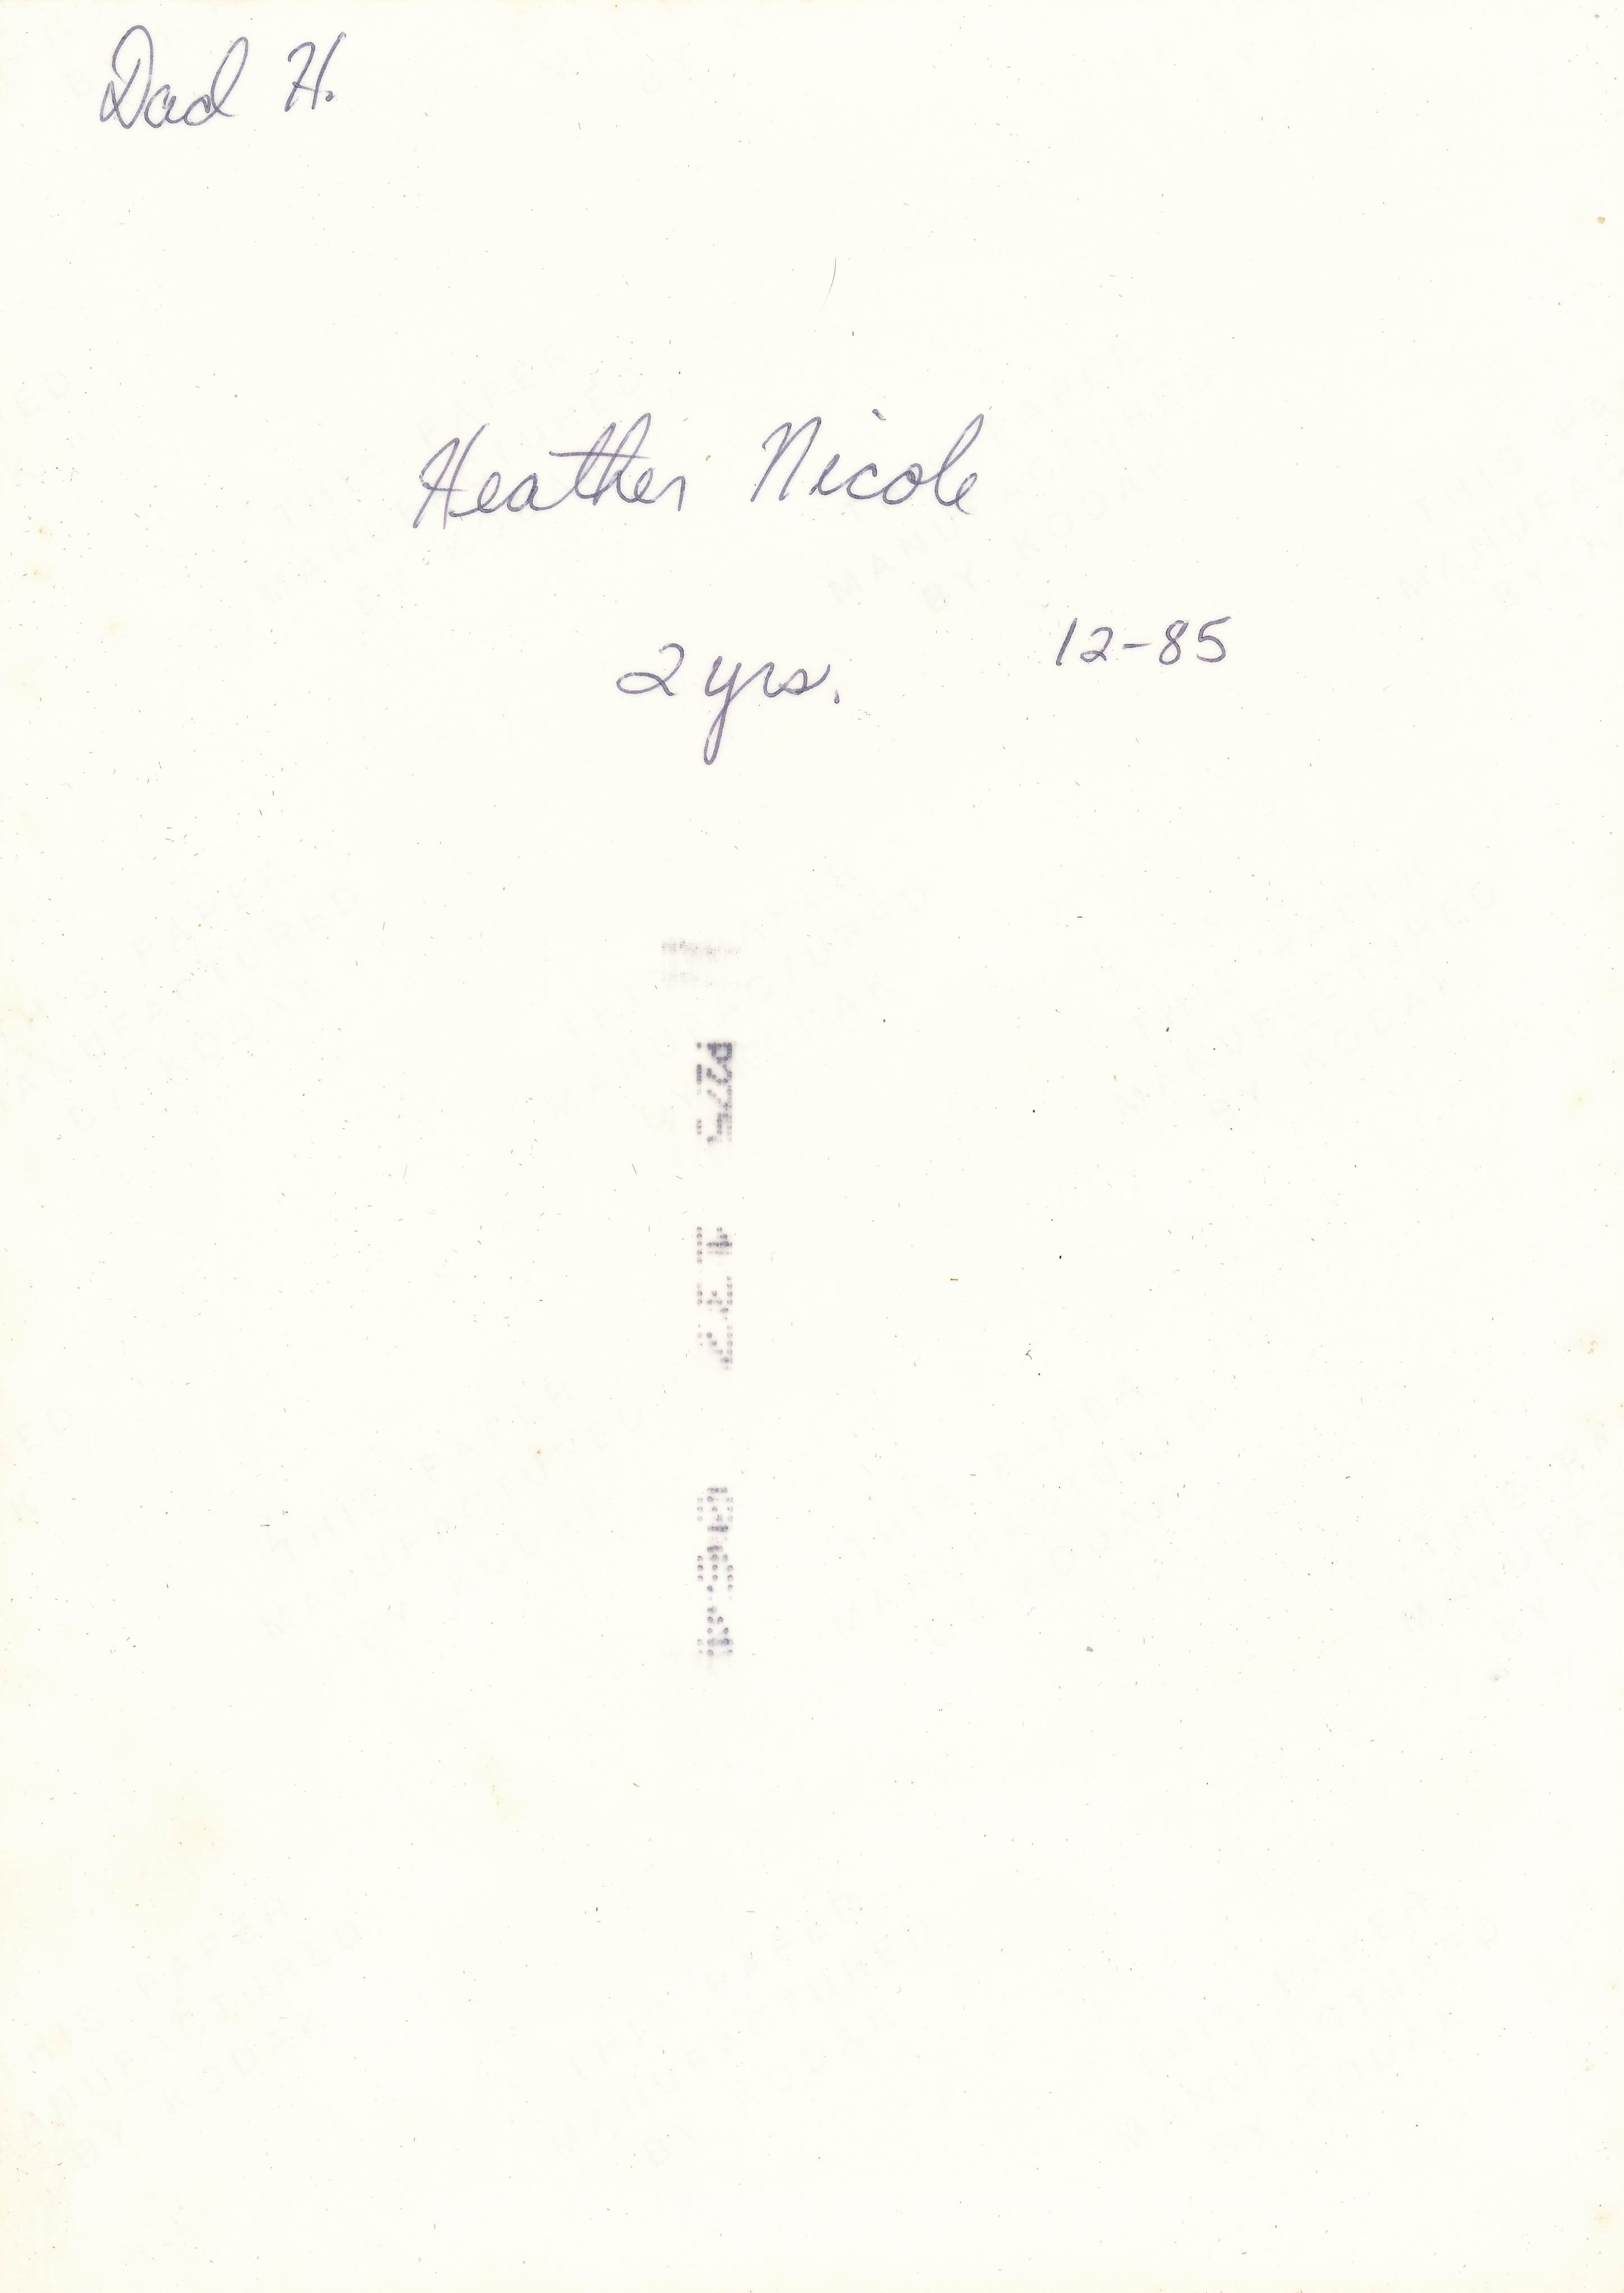 Dad H.
Heather Nicole
2 yrs. 12-85
THIS PAPER
MANUFACTURED
BY KODAK